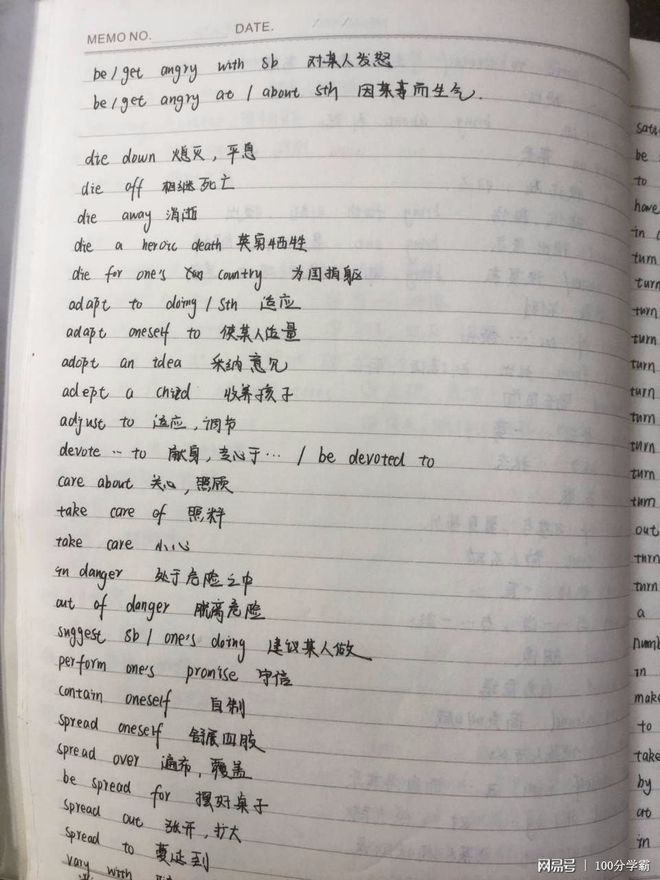 MEMO NO. DATE. / /
be / get angry with sb 对某人发怒
be / get angry at / about sth 因某事而生气.
die down 熄灭, 平息
die off 相继死亡
die away 消逝
die a heroic death 英勇牺牲
die for one's country 为国捐躯
adapt to doing / sth 适应
adapt oneself to 使某人适量
adopt an idea 采纳意见
adept a child 收养孩子
adjust to 适应, 调节
devote … to 献身, 专心于… / be devoted to
care about 关心, 照顾
take care of 照料
take care 小心
in danger 处于危险之中
out of danger 脱离危险
suggest sb / one's doing 建议某人做
perform one's promise 守信
contain oneself 自制
spread oneself 舒展四肢
spread over 遍布, 覆盖
be spread for 摆好桌子
spread out 张开, 扩大
spread to 蔓延到
vary with
be
to
have
in
turn
turn
turn
turn
turn
turn
turn
turn
turn
turn
turn
turn
out
turn
turn
a
numb
in
make
to
take
by
at
in
网易号 | 100分学霸